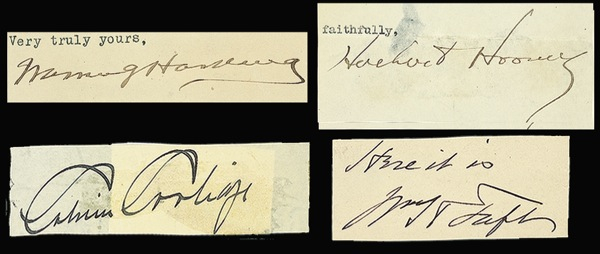 Very truly yours,
Warren G Harding
faithfully,
Herbert Hoover
Calvin Coolidge
Here it is
Wm H Taft